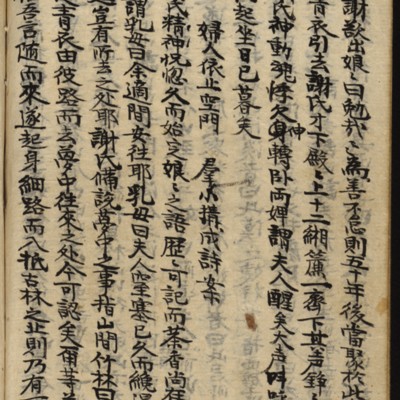 謝欲出娘〻曰勉哉〻〻爲善不怠則五十年後當聚於此
青衣引去謝氏才下殿〻上十二緗簾一齊下其声鏘
氏神動魄悸久神身轉卧両婢謂夫人醒矣大声呼
起坐日已暮矣
婦人依止空門 羣小搆成詩案
民精神恍惚久而始定娘〻之語歷〻可記而茶香尚在
謂乳母曰余適間安徃耶乳母曰夫人窒塞已久而纔
豈有所去之处耶謝氏備説夢中之事指山間竹林曰
青衣由彼路而去夢中徃來之处今可認矣爾等
吾言随而來遂起身細路而入抵古林之止則乃有一